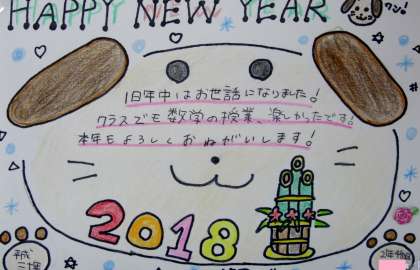 HAPPY NEW YEAR
ワン!
1日年中はお世話になりました!
クラスでも数学の授業、楽しかったです!
本年もよろしくおねがいします!
2018
平成
2年